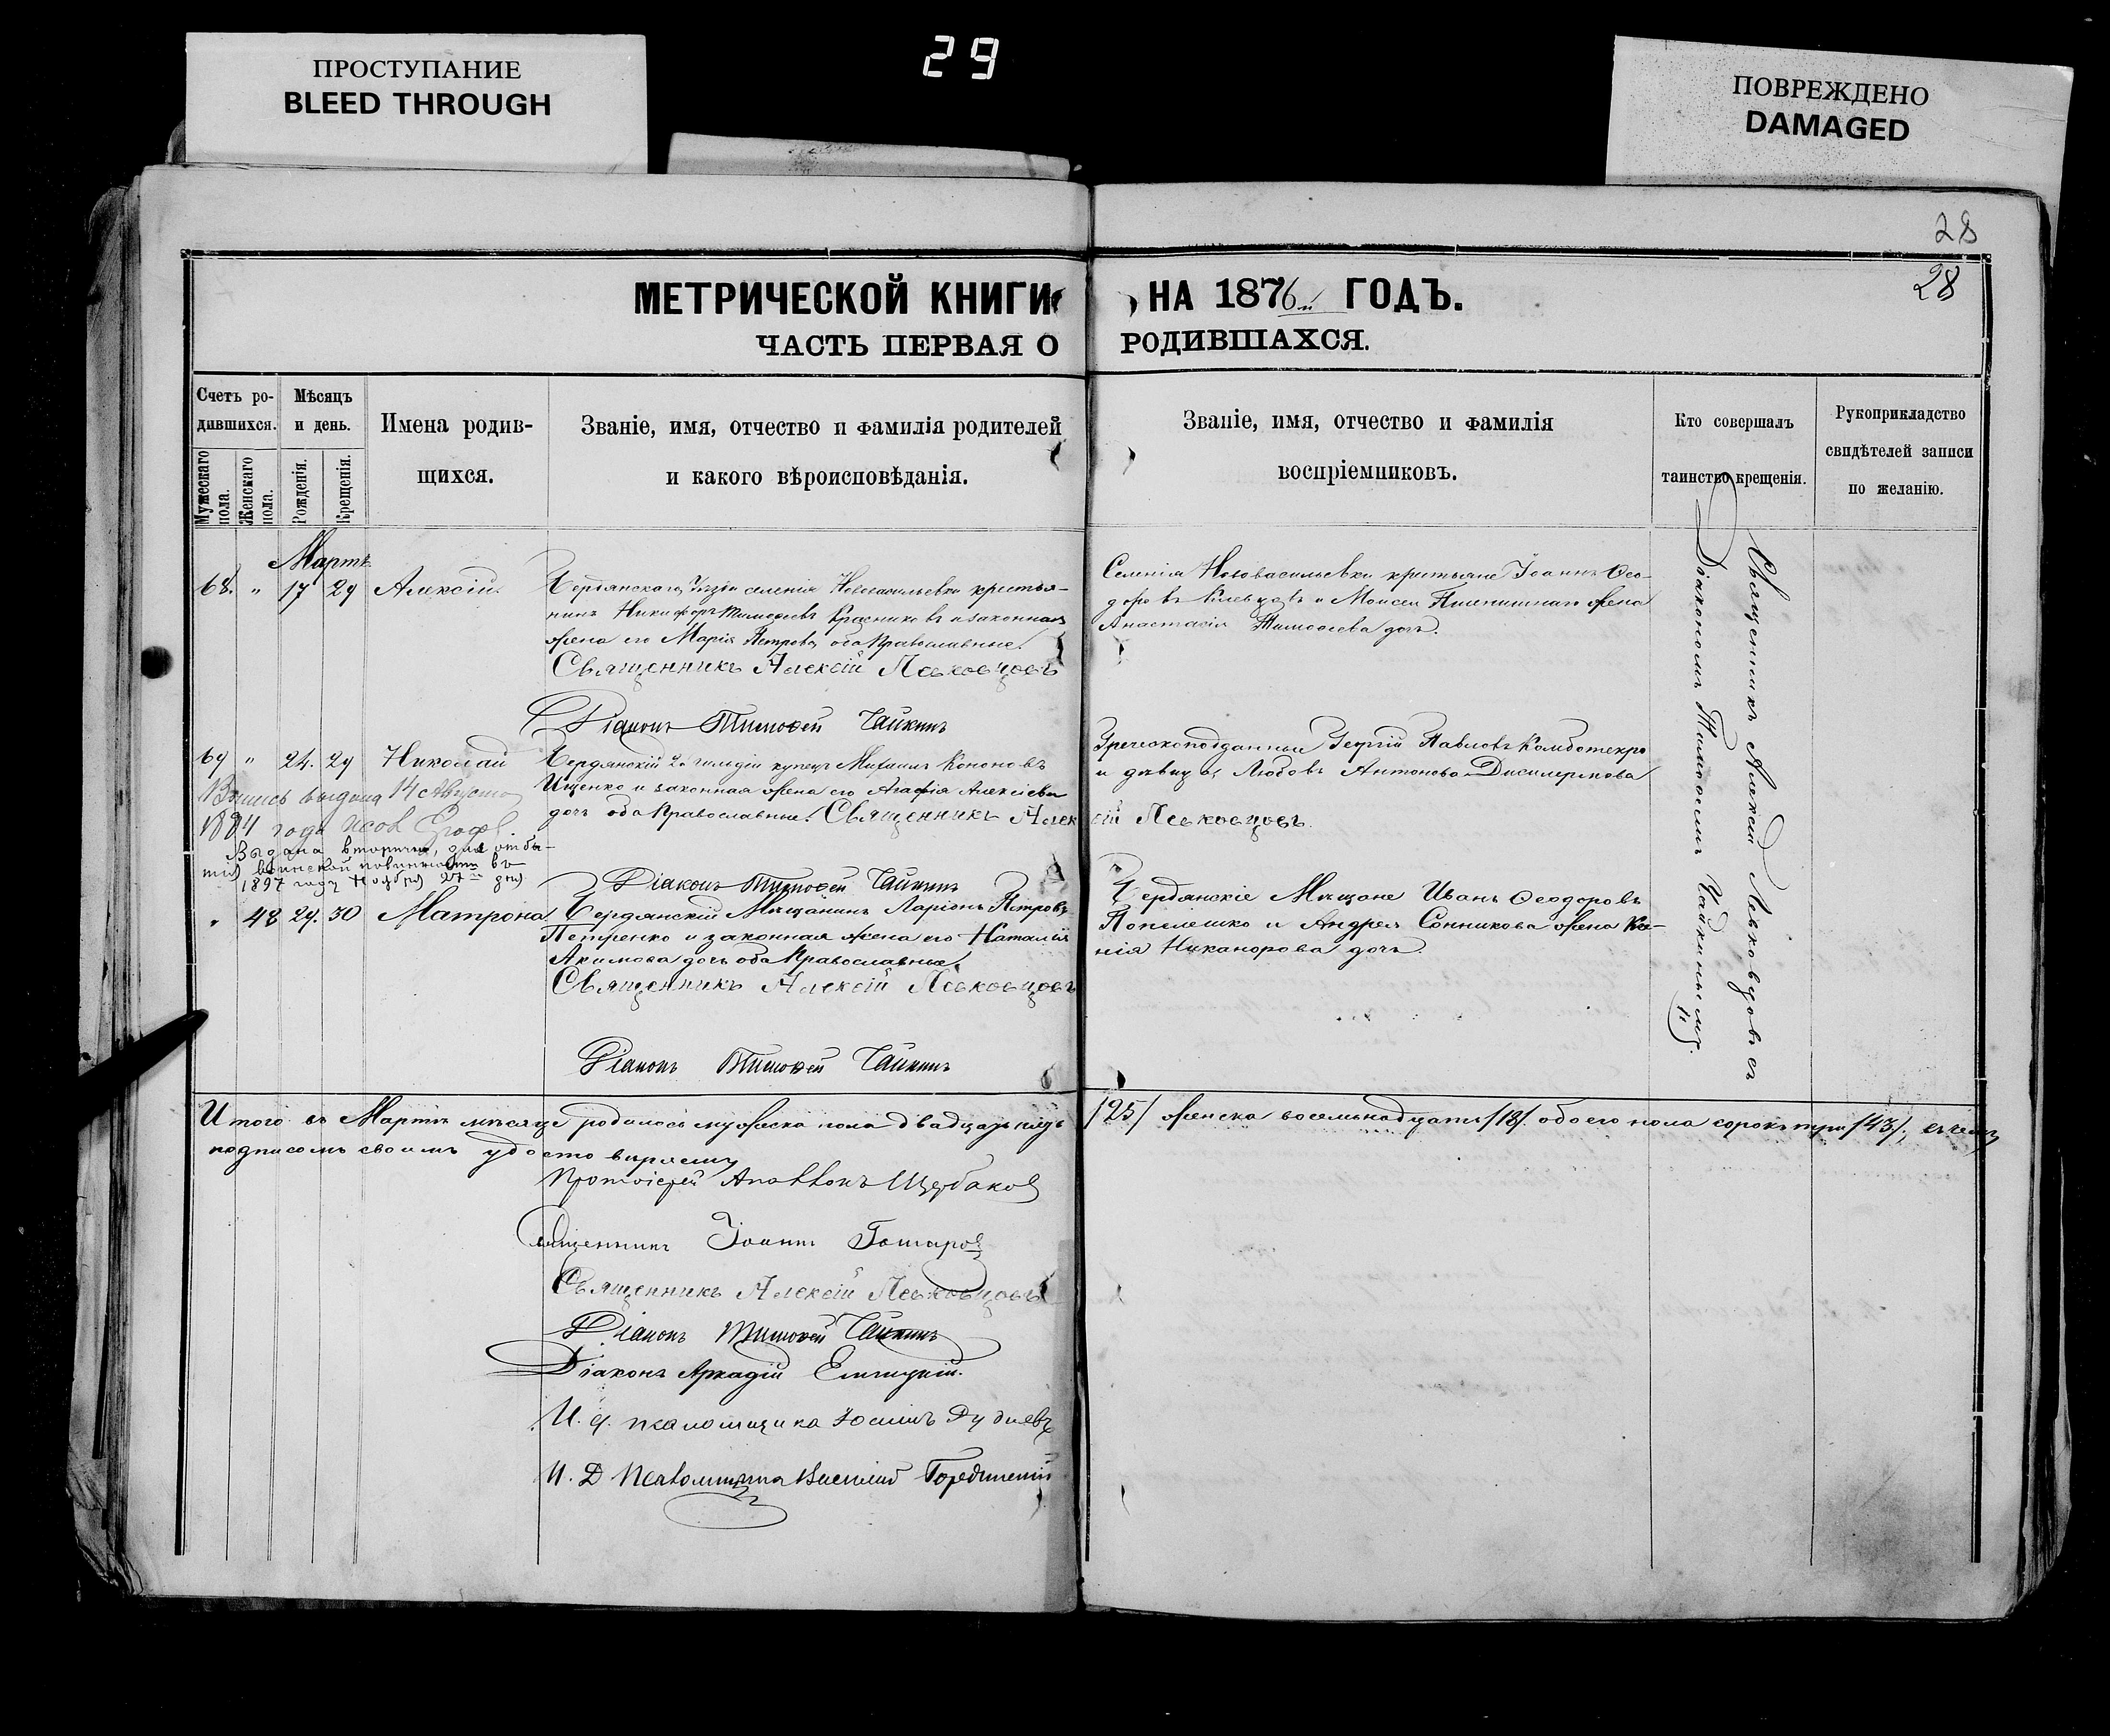 ПРОСТУПАНИЕ
BLEED THROUGH
29
ПОВРЕЖДЕНО
DAMAGED
28
28
МЕТРИЧЕСКОЙ КНИГИ НА 1876 ГОДЪ.
ЧАСТЬ ПЕРВАЯ О РОДИВШАХСЯ.
Счетъ ро-
дившихся.
Мужескаго
пола.
Женскаго
пола.
Мѣсяцъ
и день.
Рожденія.
Крещенія.
Имена родив-
щихся.
Званіе, имя, отчество и фамилія родителей
и какого вѣроисповѣданія.
Званіе, имя, отчество и фамилія
воспріемниковъ.
Кто совершалъ
таинство крещенія.
Рукоприкладство
свидѣтелей записи
по желанію.
Мартъ
68. " 17 29 Алексій.
Бердянскаго уѣзда селенія Нововасильевки крестья-
нинъ Никифоръ Тимофеевъ Красниковъ и законная
жена его Марія Петрова оба Православные.
Священникъ Алексій Левковцовъ
Діаконъ Тимофей Чайкинъ
Селенія Нововасильевки крестьяне Іоаннъ Ѳео-
доровъ и Моисея жена
Анастасія Тимоѳеева дочь.
69 " 24. 29 Николай
Бердянскій 2й гильдіи купецъ Михаилъ Кононовъ
Ищенко и законная жена его Агафія Алексіева
дочь оба Православные. Священникъ Алексій Левковцовъ.
Діаконъ Тимофей Чайкинъ
Греческоподданные Георгій Павловъ
и дѣвица Любовь Антонова
выдана 14 Августа
1884 года
Выдана вторично, для отбы-
тія воинской повинности въ
1897 году Ноября 27 дня
" 48 29. 30 Матрона
Бердянскій Мѣщанинъ Ларіонъ Петровъ
Петренко и законная жена его Наталія
Акимова дочь оба Православные.
Священникъ Алексій Левковцовъ
Діаконъ Тимофей Чайкинъ
Бердянскіе Мѣщане Иванъ Ѳеодоровъ
и Андрея Сонникова жена Ксе-
нія Никанорова дочь.
Священникъ Алексій Левковцовъ съ
Діакономъ Тимоѳеемъ Чайкинымъ.
Итого въ Мартѣ мѣсяцѣ родилось мужеска пола двадцать пять /25/ женска восемьнадцать /18/. обоего пола сорокъ три /43/, въ чемъ
подписомъ своимъ удостовѣряемъ
Протоіерей Щербаковъ
Священникъ Іоаннъ
Священникъ Алексій Левковцовъ
Діаконъ Тимофей Чайкинъ
Діаконъ Аркадій
И. д. псаломщика
И. Д. Псаломщика Василий